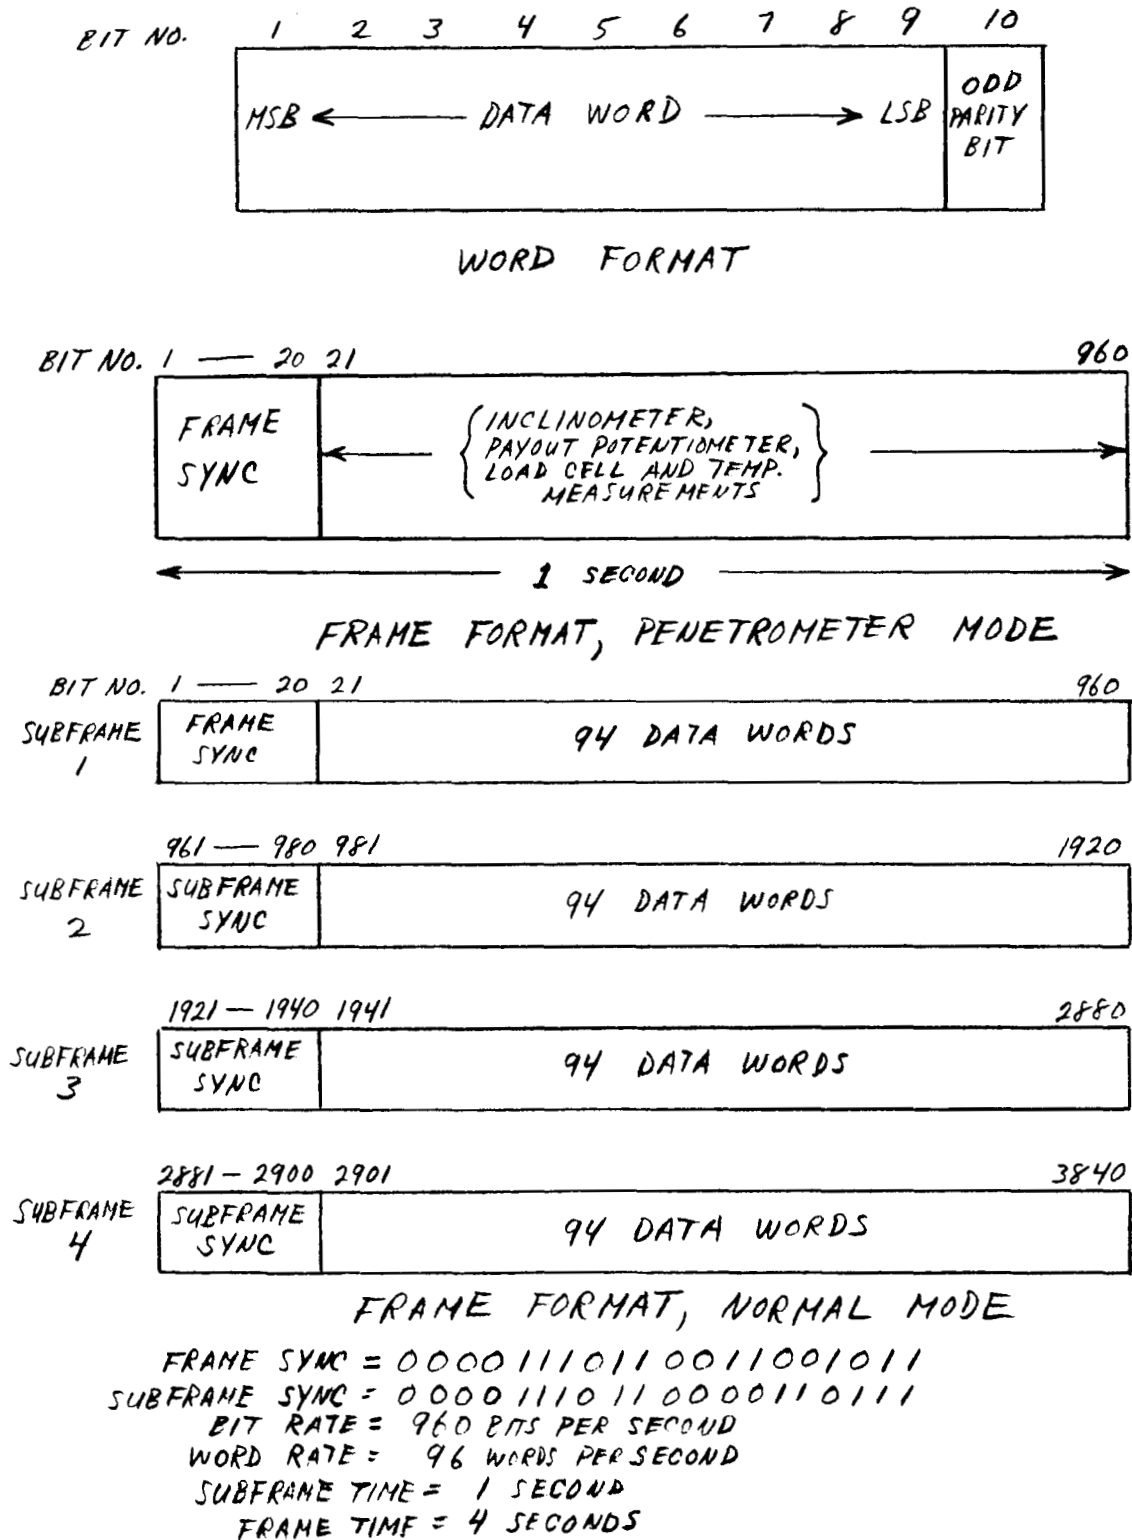 BIT NO. 1 2 3 4 5 6 7 8 9 10
MSB ← DATA WORD → LSB
ODD
PARITY
BIT
WORD FORMAT
BIT NO. 1 — 20 21 960
FRAME
SYNC
INCLINOMETER,
PAYOUT POTENTIOMETER,
LOAD CELL AND TEMP.
MEASUREMENTS
1 SECOND
FRAME FORMAT, PENETROMETER MODE
BIT NO. 1 — 20 21 960
SUBFRAME
1
FRAME
SYNC
94 DATA WORDS
961 — 980 981 1920
SUBFRAME
2
SUBFRAME
SYNC
94 DATA WORDS
1921 — 1940 1941 2880
SUBFRAME
3
SUBFRAME
SYNC
94 DATA WORDS
2881 — 2900 2901 3840
SUBFRAME
4
SUBFRAME
SYNC
94 DATA WORDS
FRAME FORMAT, NORMAL MODE
FRAME SYNC = 00001110110011001011
SUBFRAME SYNC = 00001110110000110111
BIT RATE = 960 BITS PER SECOND
WORD RATE = 96 WORDS PER SECOND
SUBFRAME TIME = 1 SECOND
FRAME TIME = 4 SECONDS